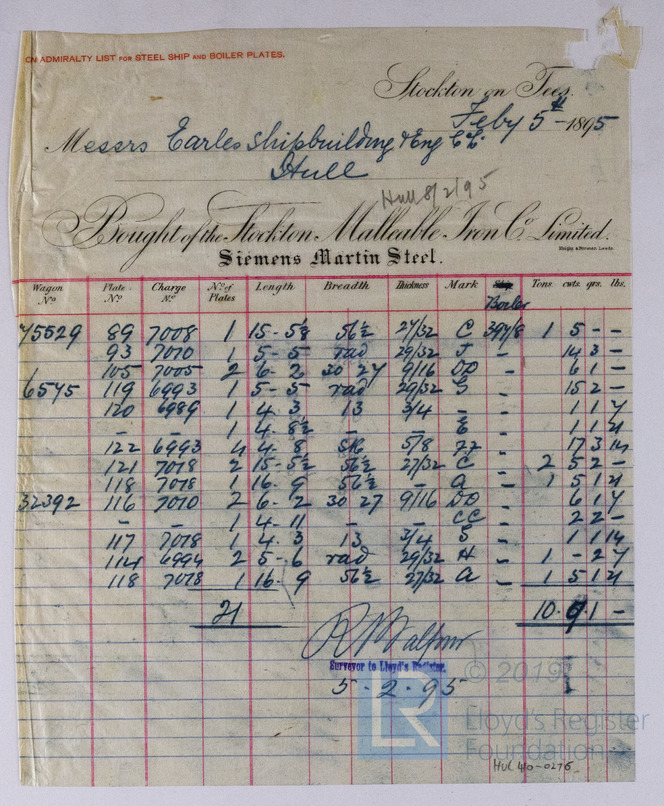 ON ADMIRALTY LIST FOR STEEL SHIP AND BOILER PLATES.
Stockton on Tees,
Feby 5th 1895
Messrs Earles Shipbuilding & Eng Co Ld.
Hull
Hull 8/2/95
Bought of the Stockton Malleable Iron Co. Limited.
Siemens Martin Steel.
Wagon No. Plate No. Charge No. No. of Plates Length Breadth Thickness Mark Ship Boiler Tons cwts. qrs. lbs.
75529 89 7008 1 15-5⅛ 56½ 27/32 C 397/8 1 5 - -
93 7010 1 5-5 rad 29/32 J - 14 3 -
105 7005 2 6-2 30 27 9/16 DD - 6 1 -
6575 119 6993 1 5-5 rad 29/32 G - 15 2 -
120 6989 1 4.3 13 3/4 - - 1 1 7
- - 1 4.8½ - - E - 1 1 21
122 6993 4 4.8½ 5/8 ZZ - 17 3 14
121 7018 2 15-5½ 56½ 27/32 C - 2 5 2 -
118 7018 1 16-9 56½ - A - 1 5 1 21
32392 116 7010 2 6-2 30 27 9/16 DD - 6 1 7
- - 1 4-11 - - CC - 2 2 -
117 7018 1 4.3 13 3/4 S - 1 1 14
114 6994 2 5-6 rad 29/32 H - 1 - 2 7
118 7018 1 16-9 56½ 27/32 A - 1 5 1 21
21 10.9.1 -
R Balfour
Surveyor to Lloyd's Register.
5-2-95
© 2019
LR
Lloyd's Register
Foundation
HUL 410-0276